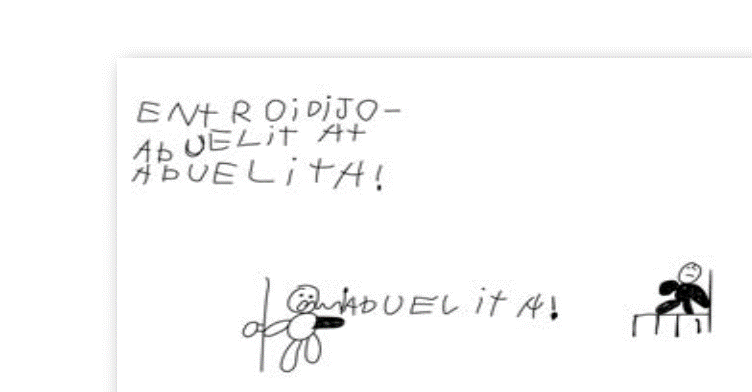 ENtROiDiJO-
AbUELitAt
AbUELitA!
AbUELitA!